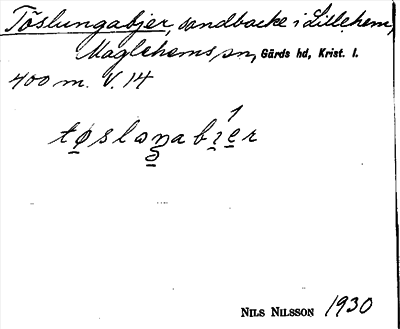 Töslungabjer, sandbacke i Lillehem,
Maglehems sn, Gärds hd, Krist. l.
400 m. V. 14
tøslaŋabıer
NILS NILSSON 1930